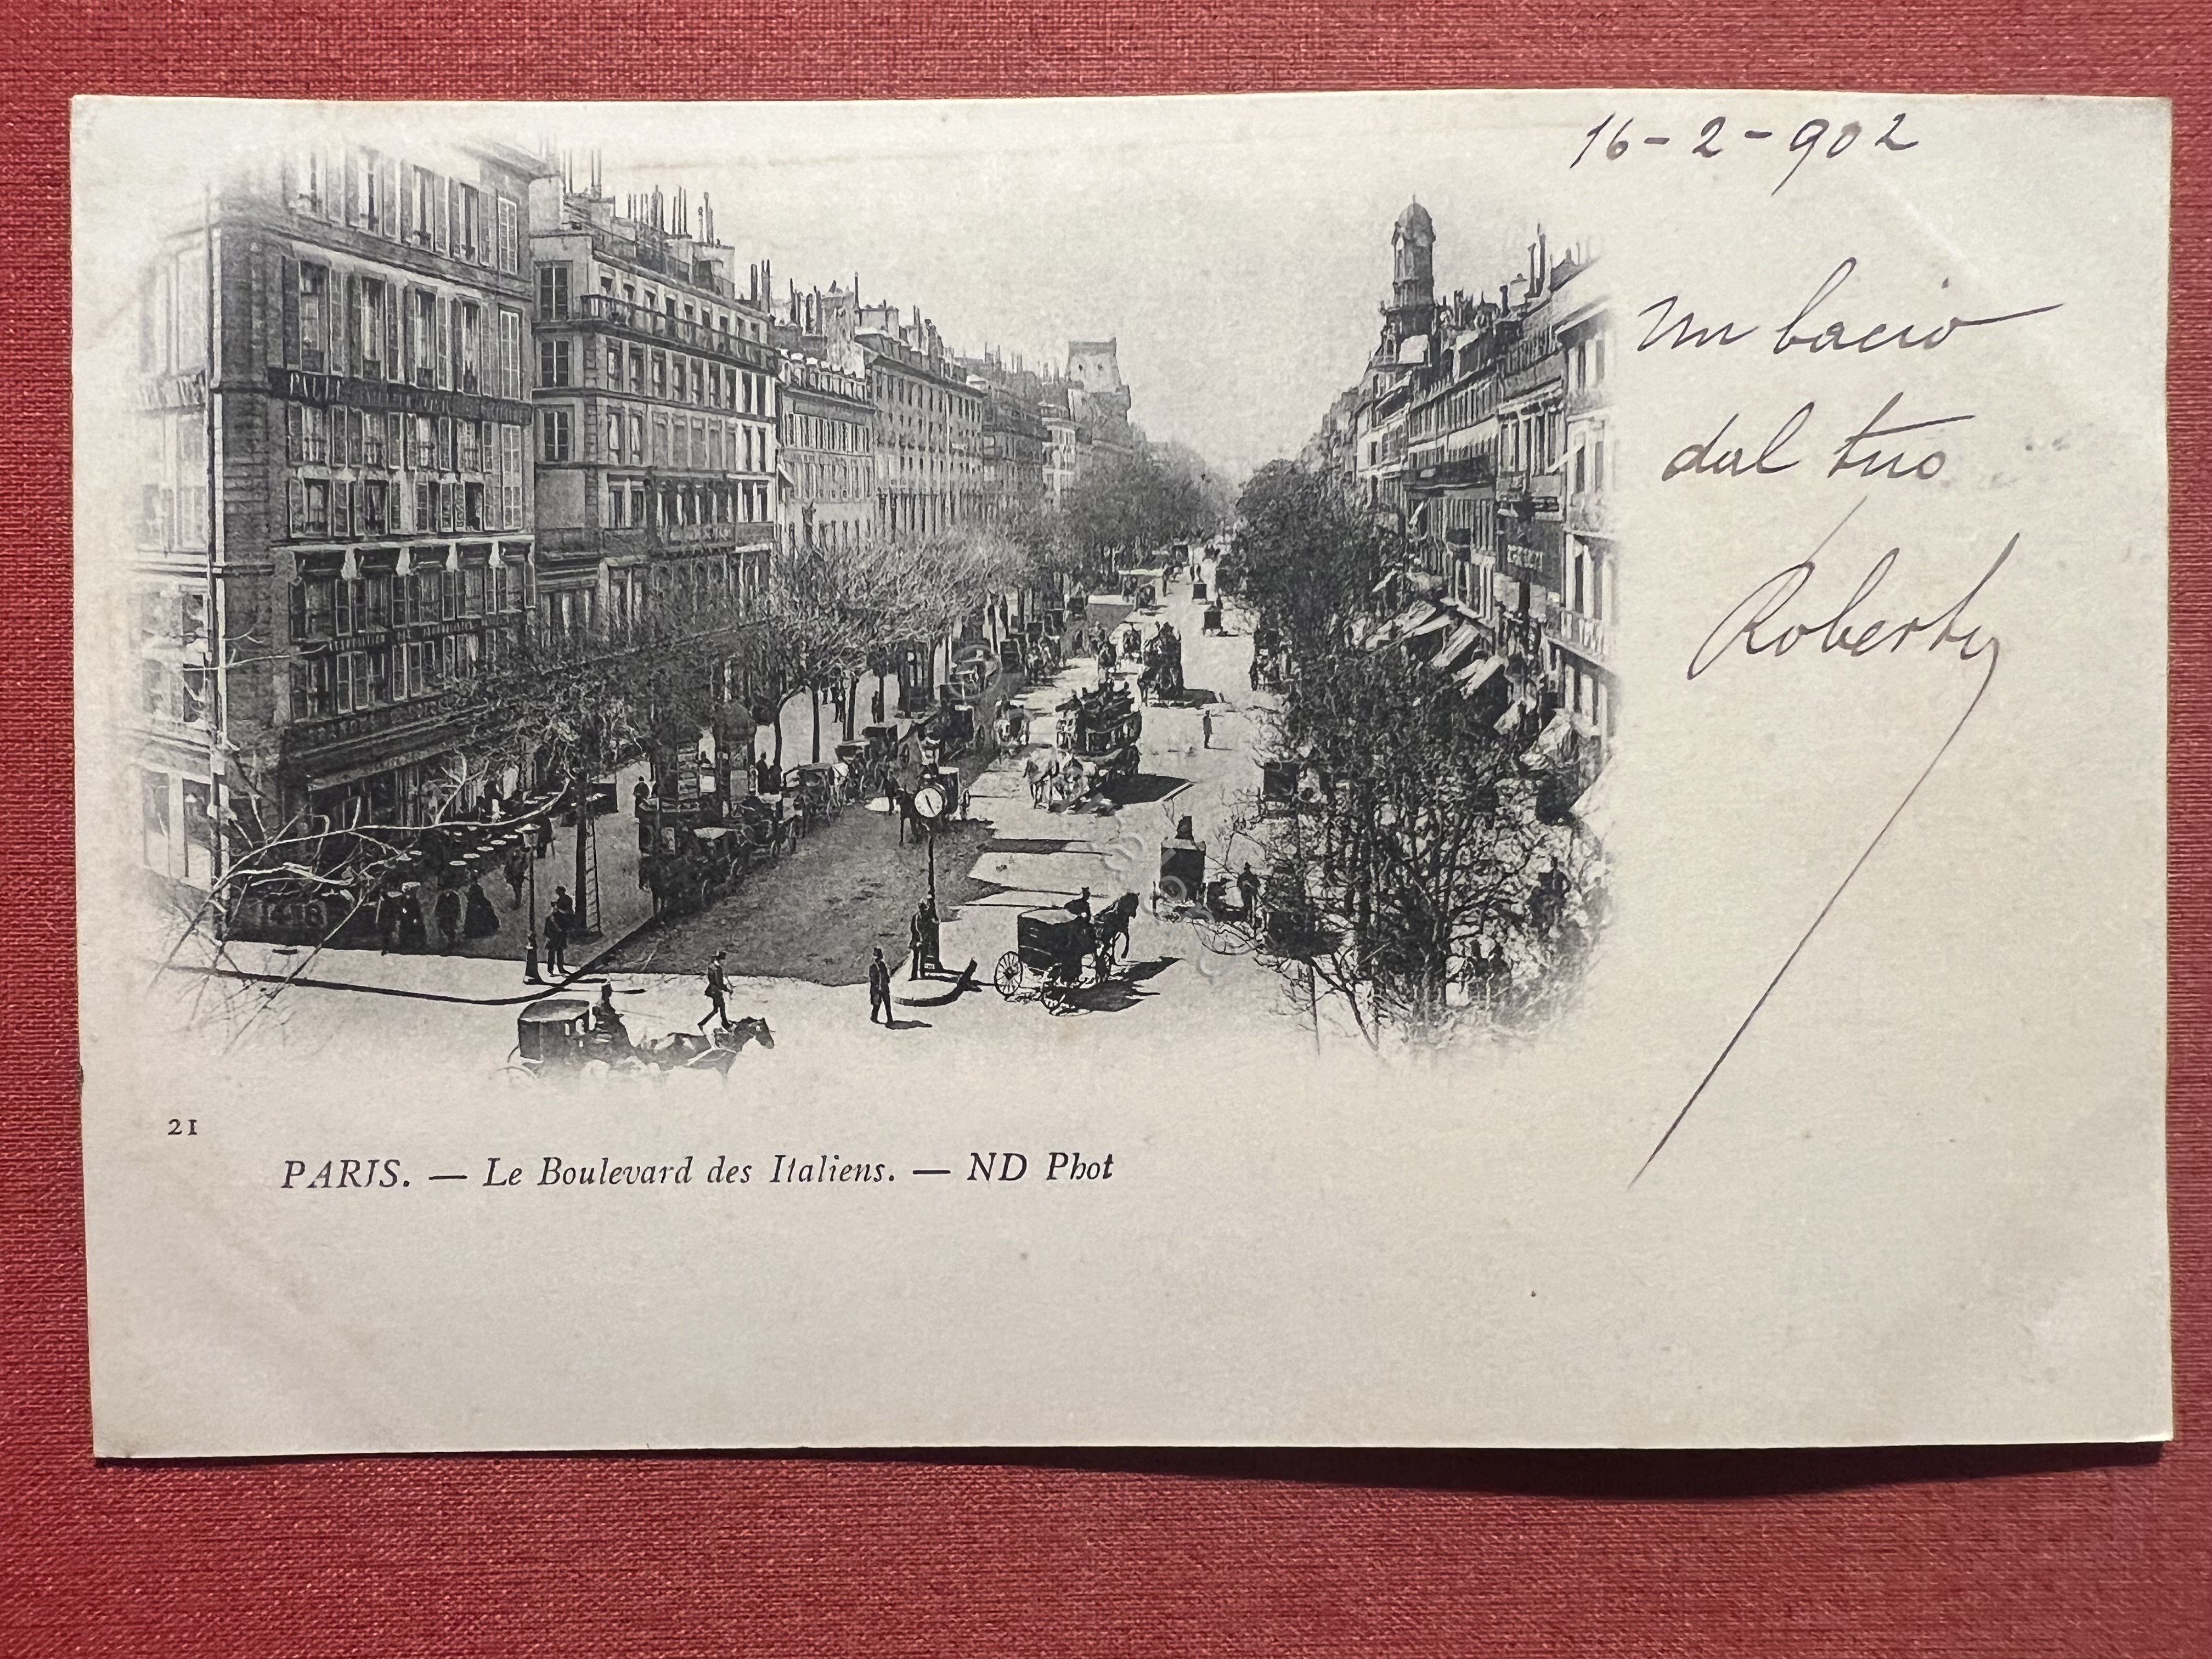 16-2-902
un bacio
dal tuo
Roberto
21
PARIS. — Le Boulevard des Italiens. — ND Phot